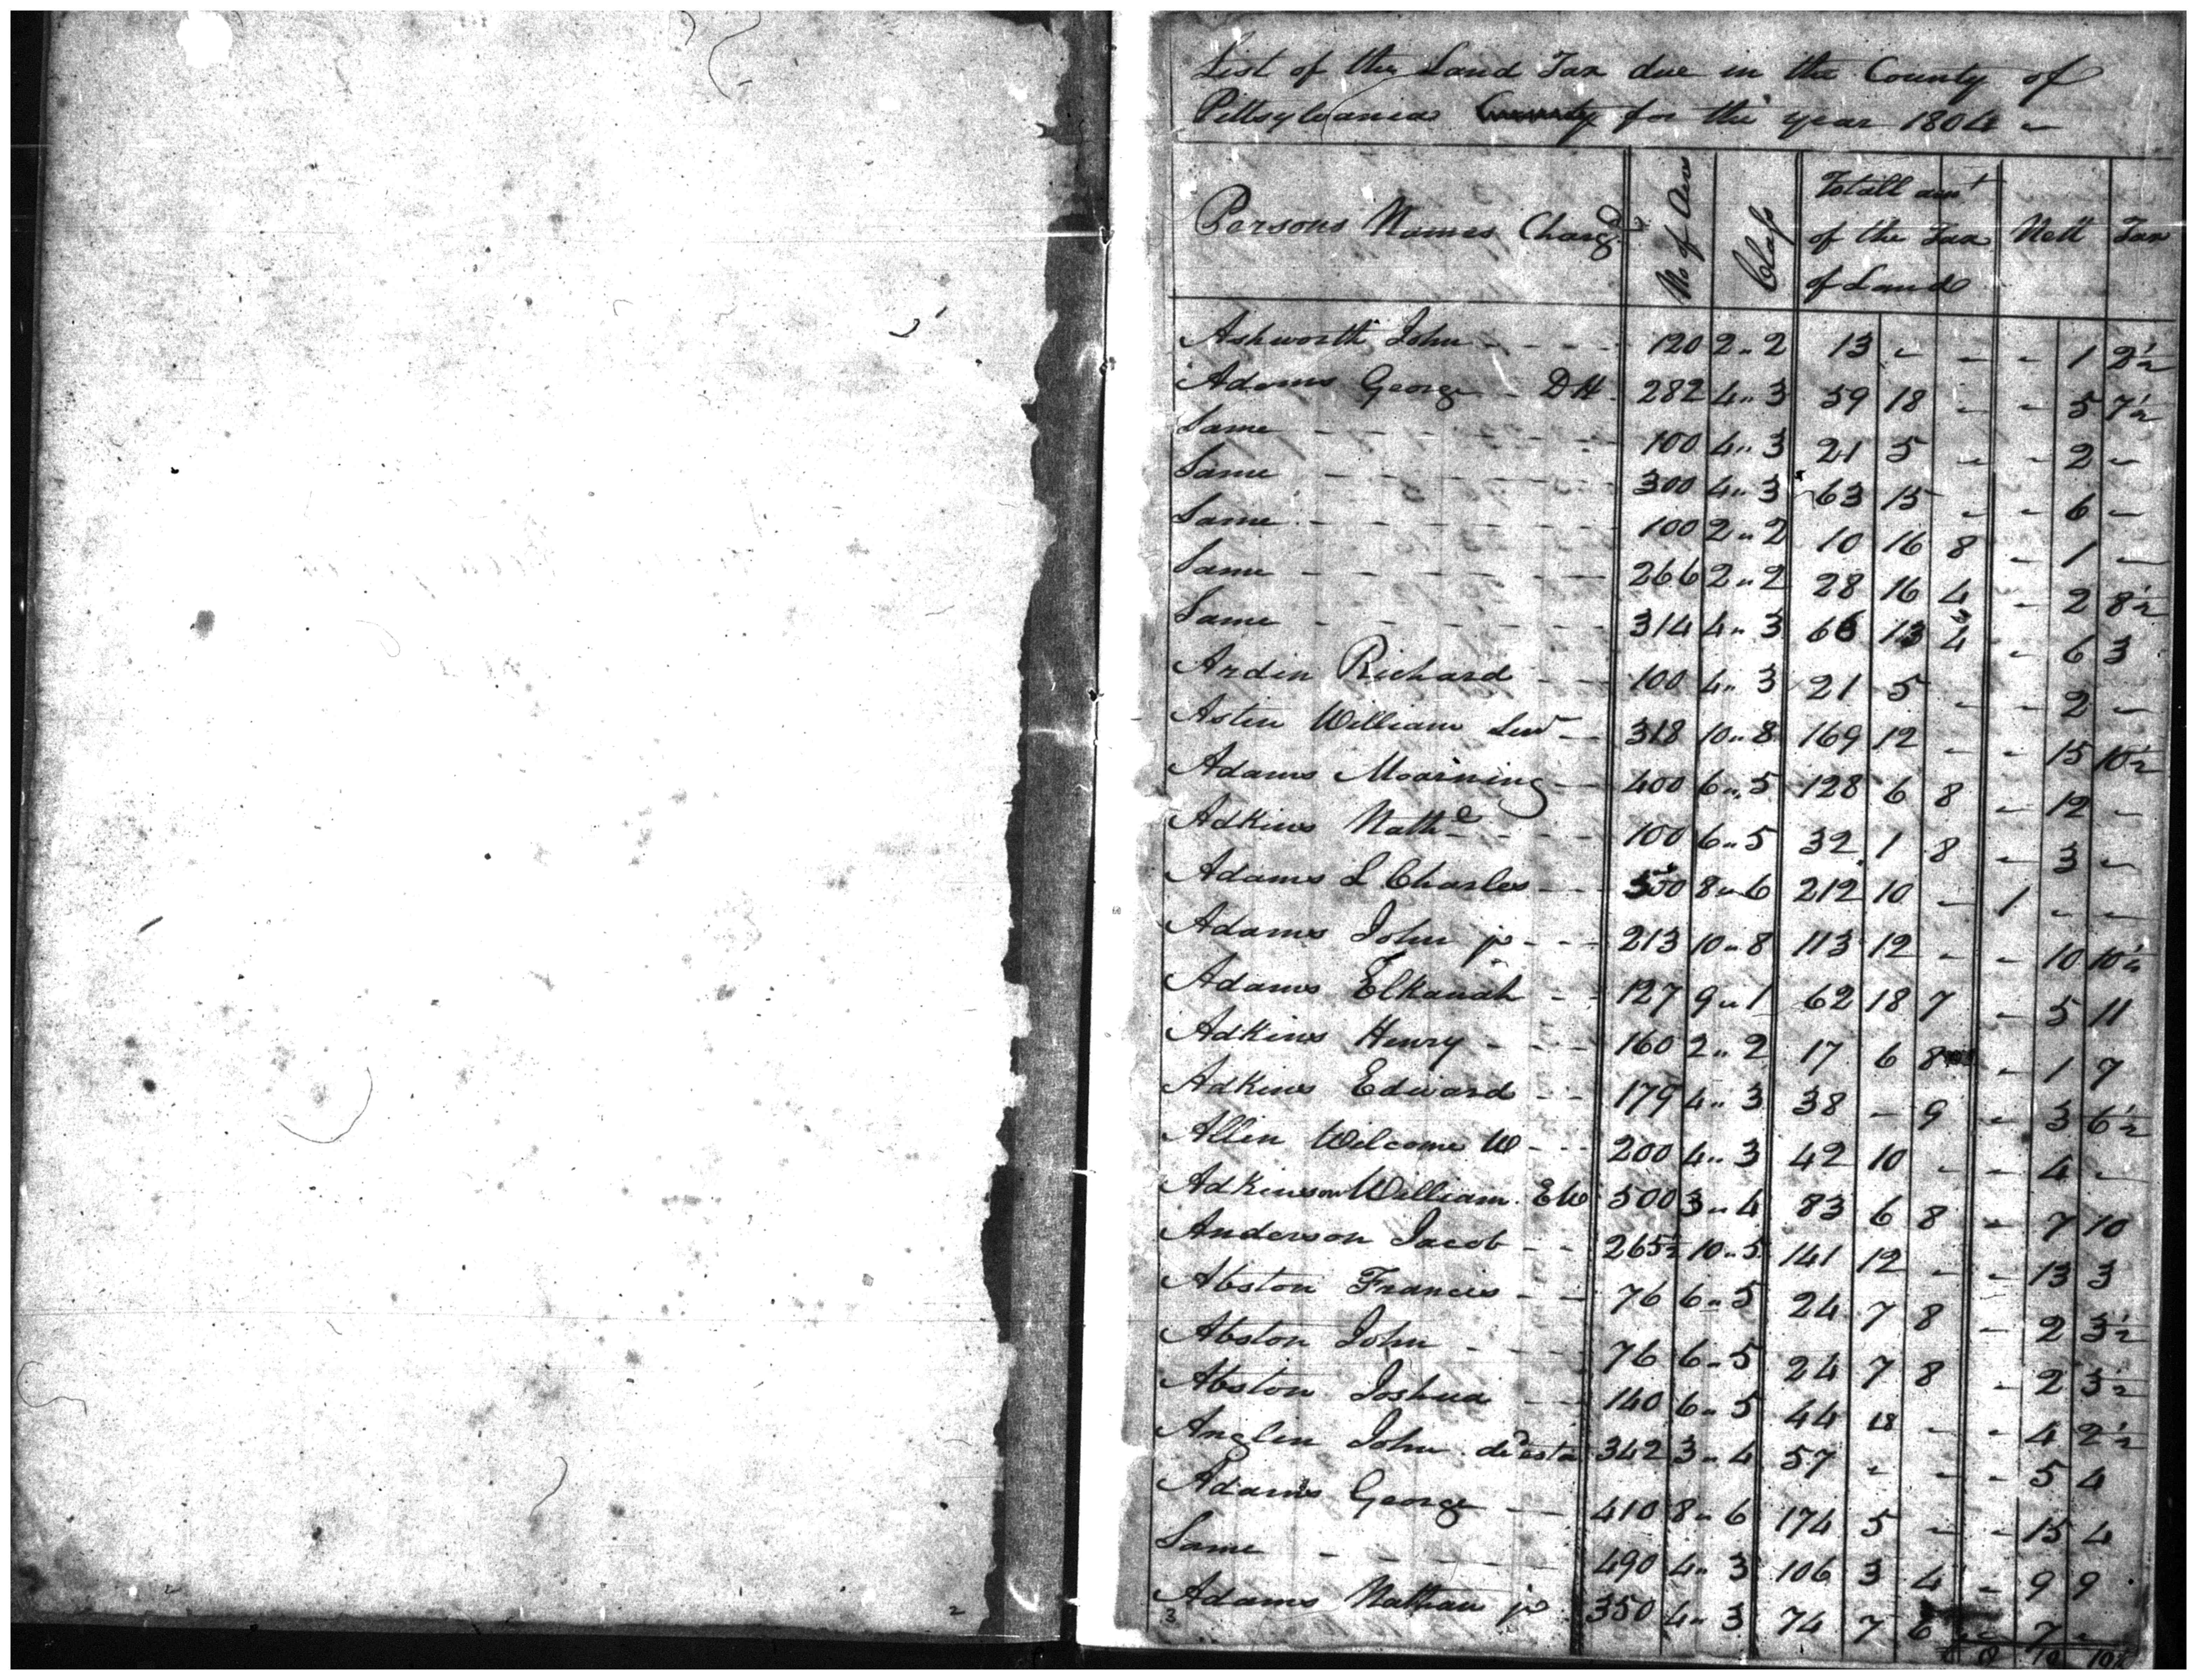 List of the Land Tax due in the County of
Pittsylvania County for the year 1804 ~
Persons Names Charg^d No of Acres Class Totall am^t of the Tax of Land Nett Tax
Ashworth John - - - - 120 2 „ 2 13 - - - 1 2½
Adams George - DH 282 4 „ 3 59 18 - - 5 7½
Same - - - - - - 100 4 „ 3 21 5 - - 2 -
Same - - - - - - 300 4 „ 3 63 15 - - 6 -
Same - - - - - - 100 2 „ 2 10 16 8 - 1 -
Same - - - - - - 266 2 „ 2 28 16 4 - 2 8½
Same - - - - - - 314 4 „ 3 66 13 4 - 6 3
Ardin Richard - - 100 4 „ 3 21 5 - - 2 -
Astin William Sen^r - - 318 10 „ 8 169 12 - - 15 10½
Adams Moarning - 400 6 „ 5 128 6 8 - 12 -
Adkins Nath^e - - - - 100 6 „ 5 32 1 8 - 3 -
Adams L Charles - - - 500 8 „ 6 212 10 - 1 - -
Adams John jr - - - 213 10 „ 8 113 12 - - 10 10½
Adams Elkanah - - 127 9 „ 1 62 18 7 - 5 11
Adkins Henry - - - - 160 2 „ 2 17 6 8 - 1 7
Adkins Edward - - 179 4 „ 3 38 - 9 - 3 6½
Allin Welcome W - - - 200 4 „ 3 42 10 - - 4 -
Adkinson William EW 500 3 „ 4 83 6 8 - 7 10
Anderson Jacob - - 265½ 10 „ 5 141 12 - - 13 3
Abston Francis - - 76 6 „ 5 24 7 8 - 2 3½
Abston John - - - - 76 6 „ 5 24 7 8 - 2 3½
Abston Joshua - - 140 6 „ 5 44 18 - - 4 2½
Anglin John de^d esta 342 3 „ 4 57 - - - 5 4
Adams George - - 410 8 „ 6 174 5 - - 15 4
Same - - - - - - 490 4 „ 3 106 3 4 - 9 9
Adams Nathan jr 350 4 „ 3 74 7 6 - 7 -
3
2